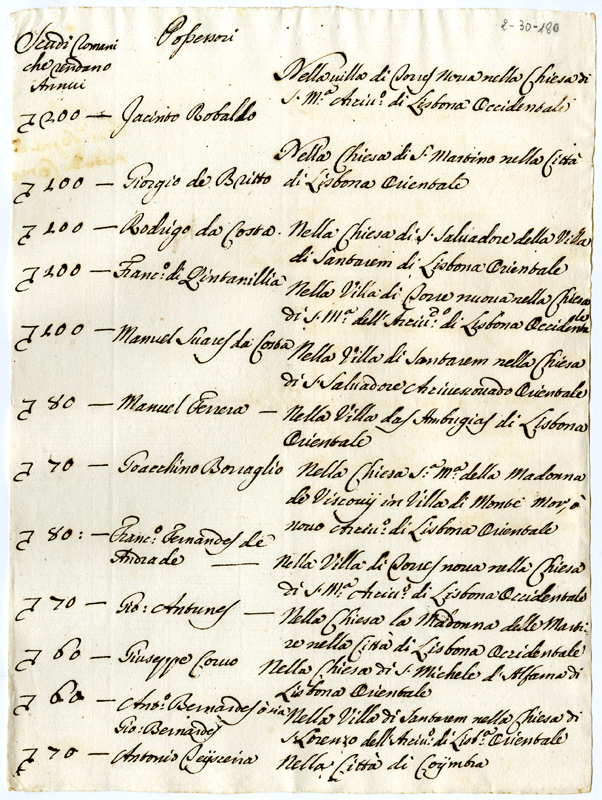 2-30-180
Scudi Romani Possessori
che rendano
Annui
Nella villa di Torres Nova nella Chiesa di
∇ 200 — Jacinto Robaldo S. Mª. Arciuº. di Lisbona Occidentale
Nella Chiesa di S. Martino nella Città
∇ 100 — Giorgio de Britto di Lisbona Orientale
∇ 100 — Rodrigo da Costa. Nella Chiesa di S. Saluadore della Villa
di Santarem di Lisbona Orientale
∇ 100 — Francº. di Quintanillia Nella Villa di Torre nuova nella Chiesa
di S. Mª. dell'Arciuº. di Lisbona Occidentale
∇ 100 — Manuel Suares da Costa Nella Villa di Santarem nella Chiesa
di S. Saluadore Arciuescouado Orientale
∇ 80 — Manuel Ferrera — Nella Villa das Ambugias di Lisbona
Orientale
∇ 70 — Goacchino Borraglio Nella Chiesa S. Mª. della Madonna
de in Villa di Monte Mor, ò
nouo Arciuº. di Lisbona Orientale
∇ 80: — Francº. Fernandes de
Andrade — Nella Villa di Torres nova nella Chiesa
di S. Mª. Arciuº. di Lisbona Occidentale
∇ 70 — Gio: Antunes — Nella Chiesa la Madonna delle Marti-
re nella Città di Lisbona Occidentale
∇ 60 — Giuseppe Coruo Nella Chiesa di S. Michele d'Alfama di
Lisbona Orientale
∇ 60 — Antº. Bernardes ò sia Nella Villa di Santarem nella Chiesa di
Gio: Bernardes S. Lorenzo dell'Arciuº. di Lisbª. Orientale
∇ 70 — Antonio Teyxeria Nella Città di Coymbra